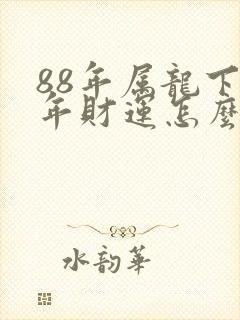 88年属龍下
年財運怎麼
水韵華